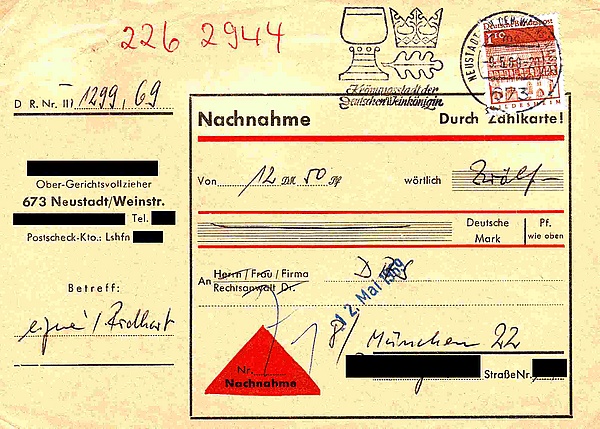 226 2944
Krönungsstadt der
Deutschen Weinkönigin
NEUSTADT AN DER WEINSTR
9.5.69-20
673 1
Deutsche Bundespost
110
HILDESHEIM
D R. Nr. III 1299, 69
Ober-Gerichtsvollzieher
673 Neustadt/Weinstr.
Tel.
Postscheck-Kto.: Lshfn
Betreff:
Nachnahme Durch Zahlkarte!
Von 12 DM 50 Pf wörtlich Zwölf
Deutsche Mark Pf. wie oben
An Herrn / Frau / Firma
Rechtsanwalt Dr.
12. Mai 1969
8 München 22
Straße Nr.
Nr.
Nachnahme